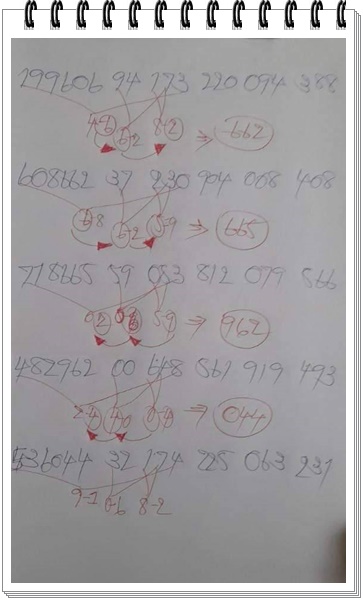 199606 94 173 220 094 388
46 6-2 8-2 ⇒ 662
608662 37 230 904 068 408
6-8 6-2 5-9 ⇒ 665
718665 59 053 812 079 566
0-2 5-9 ⇒ 962
482962 00 648 561 919 493
2-4 4-0 0-4 ⇒ 044
536044 32 174 225 063 231
9-1 0-6 8-2